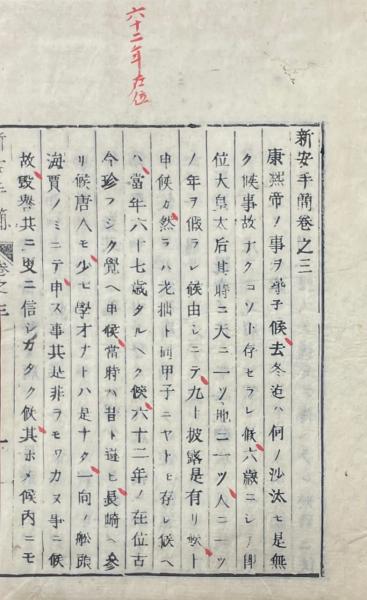 六十二年在位
新安手簡卷之三
康熙帝ノ事ヲ承予候去冬迄ハ何ノ沙汰モ是無
ク候事故ナクコソト存セラレ候六歳ニシテ即
位大皇太后其時ニ天ニ一ツ地ニ一ツ人ニ一ツ
ノ年ヲ假ラレ候由シニテ九ト披露是有リ候ト
申候カ然ラハ老拙ト同甲子ニヤトモ存レ候ヘ
ハ當年六十七歳タルヘク候六十二年ノ在位古
今珍フシク覺ヘ申候當時ハ昔ト違ヒ長崎ヘ參
リ候唐人モ少ヒ學才ナトハ是ナク一向ノ舩頭
海賈ノミニテ申ス事其是非ラモワカヌ事ニ候
故毀譽其ニ叓ニ信シカタク候其ホメ候内ニモ
新安手簡
卷之三
一